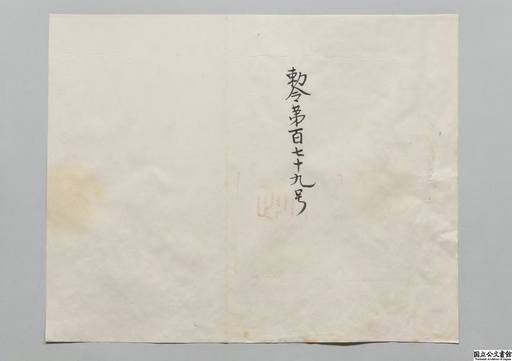 勅令第百七十九号
国立公文書館
National Archives of Japan